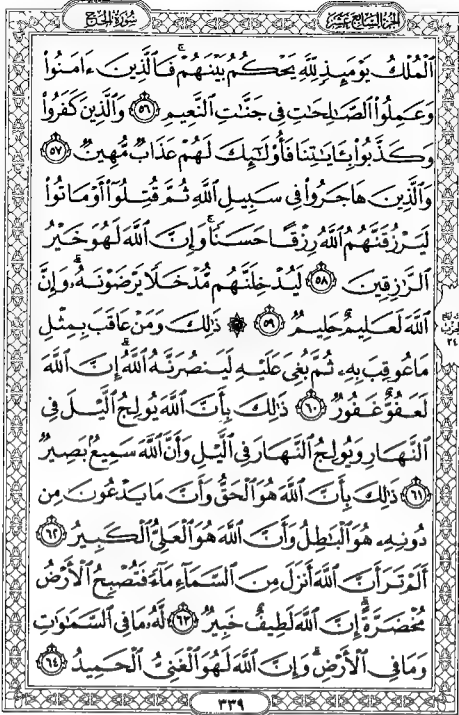 الجزء السابع عشر
سورة الحج
ٱلْمُلْكُ يَوْمَئِذٍ لِّلَّهِ يَحْكُمُ بَيْنَهُمْ ۚ فَٱلَّذِينَ ءَامَنُوا۟
وَعَمِلُوا۟ ٱلصَّـٰلِحَـٰتِ فِى جَنَّـٰتِ ٱلنَّعِيمِ ٥٦ وَٱلَّذِينَ كَفَرُوا۟
وَكَذَّبُوا۟ بِـَٔايَـٰتِنَا فَأُو۟لَـٰٓئِكَ لَهُمْ عَذَابٌ مُّهِينٌ ٥٧
وَٱلَّذِينَ هَاجَرُوا۟ فِى سَبِيلِ ٱللَّهِ ثُمَّ قُتِلُوٓا۟ أَوْ مَاتُوا۟
لَيَرْزُقَنَّهُمُ ٱللَّهُ رِزْقًا حَسَنًا ۚ وَإِنَّ ٱللَّهَ لَهُوَ خَيْرُ
ٱلرَّٰزِقِينَ ٥٨ لَيُدْخِلَنَّهُم مُّدْخَلًا يَرْضَوْنَهُۥ ۗ وَإِنَّ
ٱللَّهَ لَعَلِيمٌ حَلِيمٌ ٥٩ ۞ ذَٰلِكَ وَمَنْ عَاقَبَ بِمِثْلِ
مَا عُوقِبَ بِهِۦ ثُمَّ بُغِىَ عَلَيْهِ لَيَنصُرَنَّهُ ٱللَّهُ ۗ إِنَّ ٱللَّهَ
لَعَفُوٌّ غَفُورٌ ٦٠ ذَٰلِكَ بِأَنَّ ٱللَّهَ يُولِجُ ٱلَّيْلَ فِى
ٱلنَّهَارِ وَيُولِجُ ٱلنَّهَارَ فِى ٱلَّيْلِ وَأَنَّ ٱللَّهَ سَمِيعٌۢ بَصِيرٌ
٦١ ذَٰلِكَ بِأَنَّ ٱللَّهَ هُوَ ٱلْحَقُّ وَأَنَّ مَا يَدْعُونَ مِن
دُونِهِۦ هُوَ ٱلْبَـٰطِلُ وَأَنَّ ٱللَّهَ هُوَ ٱلْعَلِىُّ ٱلْكَبِيرُ ٦٢
أَلَمْ تَرَ أَنَّ ٱللَّهَ أَنزَلَ مِنَ ٱلسَّمَآءِ مَآءً فَتُصْبِحُ ٱلْأَرْضُ
مُخْضَرَّةً ۗ إِنَّ ٱللَّهَ لَطِيفٌ خَبِيرٌ ٦٣ لَّهُۥ مَا فِى ٱلسَّمَـٰوَٰتِ
وَمَا فِى ٱلْأَرْضِ ۗ وَإِنَّ ٱللَّهَ لَهُوَ ٱلْغَنِىُّ ٱلْحَمِيدُ ٦٤
٣٣٩